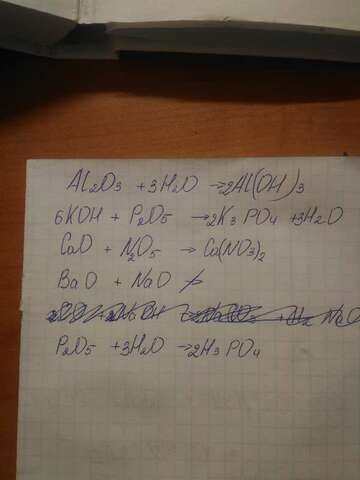 Al₂O₃ + 3H₂O → 2Al(OH)3
6KOH + P₂O₅ → 2K₃PO₄ + 3H₂O
CaO + N₂O₅ → Ca(NO₃)₂
BaO + NaO ↛
P₂O₅ + 3H₂O → 2H₃PO₄